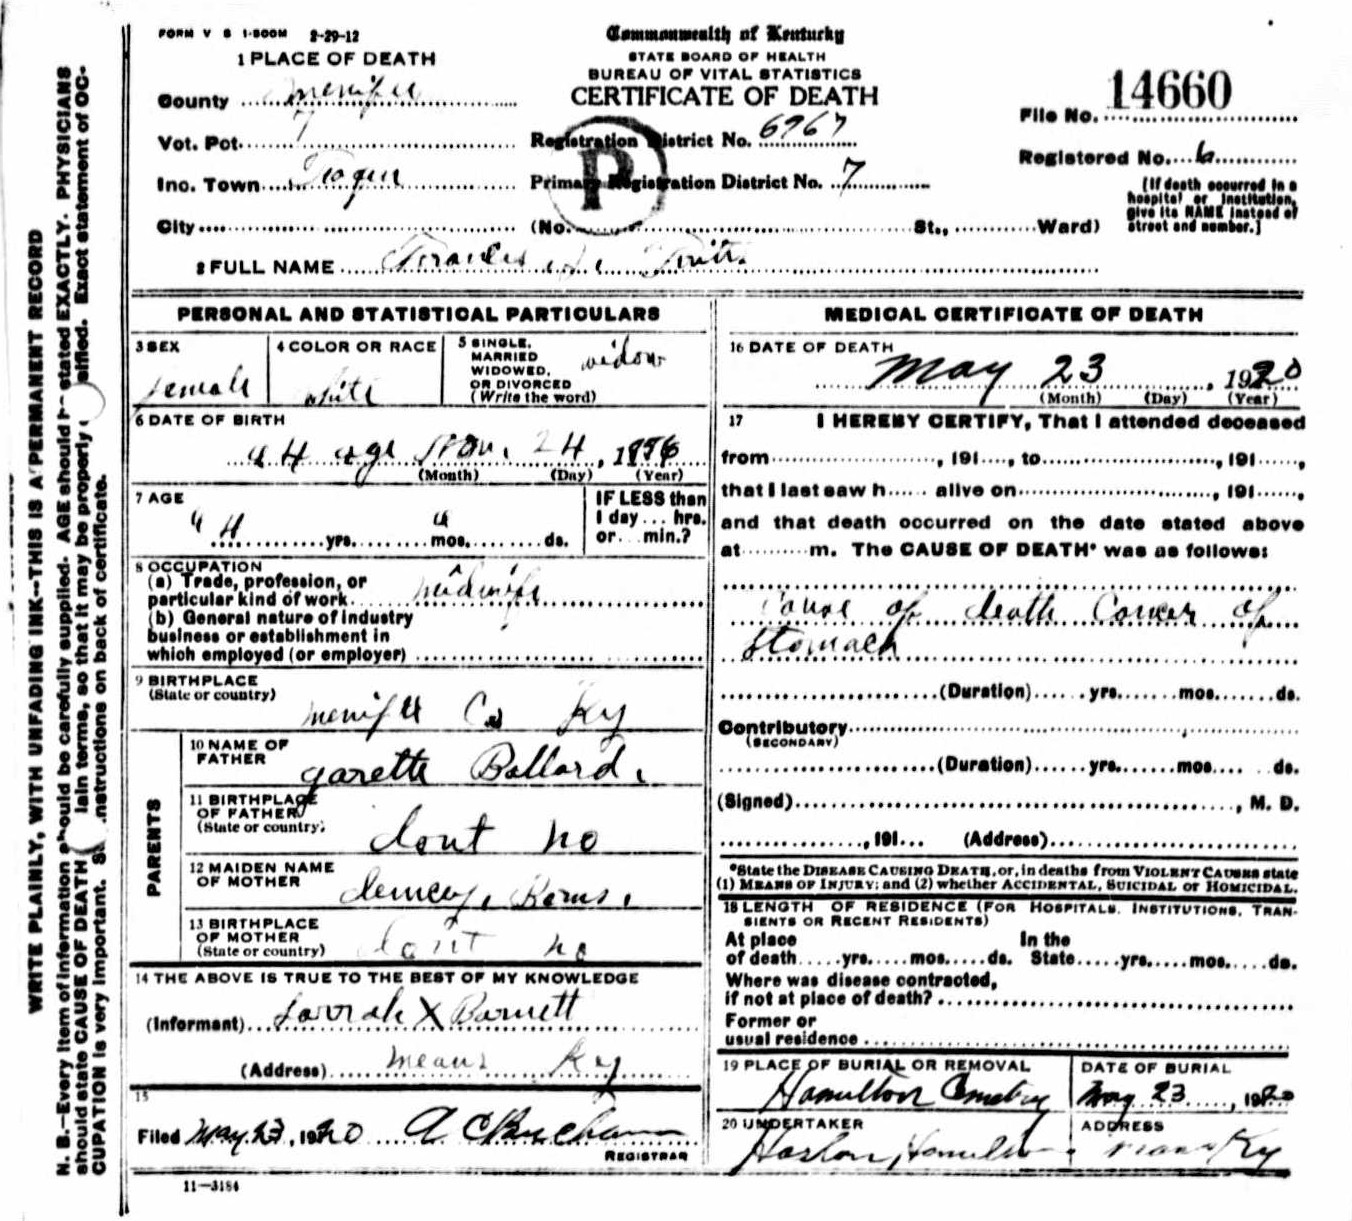 FORM V S 1-500M 2-29-12
Commonwealth of Kentucky
STATE BOARD OF HEALTH
BUREAU OF VITAL STATISTICS
CERTIFICATE OF DEATH
1 PLACE OF DEATH
County Menifee
Vot. Pct. 7
Inc. Town
City
Registration District No. 6967
Primary Registration District No. 7
P
(No. St., Ward)
File No. 14660
Registered No. 6
[If death occurred in a
hospital or institution,
give its NAME instead of
street and number.]
2 FULL NAME
PERSONAL AND STATISTICAL PARTICULARS
3 SEX
female
4 COLOR OR RACE
white
5 SINGLE,
MARRIED
WIDOWED,
OR DIVORCED
(Write the word)
widow
6 DATE OF BIRTH
age 24
(Month) (Day) (Year)
7 AGE
yrs. mos. ds.
IF LESS than
1 day ... hrs.
or ... min.?
8 OCCUPATION
(a) Trade, profession, or
particular kind of work midwife
(b) General nature of industry
business or establishment in
which employed (or employer)
9 BIRTHPLACE
(State or country)
Menifee Co Ky
PARENTS
10 NAME OF
FATHER
garette Ballard.
11 BIRTHPLACE
OF FATHER
(State or country)
dont no
12 MAIDEN NAME
OF MOTHER
13 BIRTHPLACE
OF MOTHER
(State or country)
dont no
14 THE ABOVE IS TRUE TO THE BEST OF MY KNOWLEDGE
(Informant) Sarrah X Barnett
(Address) Means Ky
15
Filed May 23, 1920
REGISTRAR
11-3184
MEDICAL CERTIFICATE OF DEATH
16 DATE OF DEATH
May 23, 1920
(Month) (Day) (Year)
17 I HEREBY CERTIFY, That I attended deceased
from , 191 , to , 191 ,
that I last saw h alive on , 191 ,
and that death occurred on the date stated above
at m. The CAUSE OF DEATH* was as follows:
Cause of death Cancer of
Stomach
(Duration) yrs. mos. ds.
Contributory
(SECONDARY)
(Duration) yrs. mos. ds.
(Signed) , M. D.
, 191 (Address)
*State the DISEASE CAUSING DEATH, or, in deaths from VIOLENT CAUSES state
(1) MEANS OF INJURY; and (2) whether ACCIDENTAL, SUICIDAL or HOMICIDAL.
18 LENGTH OF RESIDENCE (FOR HOSPITALS, INSTITUTIONS, TRAN-
SIENTS OR RECENT RESIDENTS)
At place In the
of death yrs. mos. ds. State yrs. mos. ds.
Where was disease contracted,
if not at place of death?
Former or
usual residence
19 PLACE OF BURIAL OR REMOVAL
Hamilton Cemetry
DATE OF BURIAL
May 23, 1920
20 UNDERTAKER
Harlon Hamilton
ADDRESS
Ky
WRITE PLAINLY, WITH UNFADING INK--THIS IS A PERMANENT RECORD
N. B.--Every item of information should be carefully supplied. AGE should be stated EXACTLY. PHYSICIANS
should state CAUSE OF DEATH in plain terms, so that it may be properly classified. Exact statement of OC-
CUPATION is very important. See instructions on back of certificate.